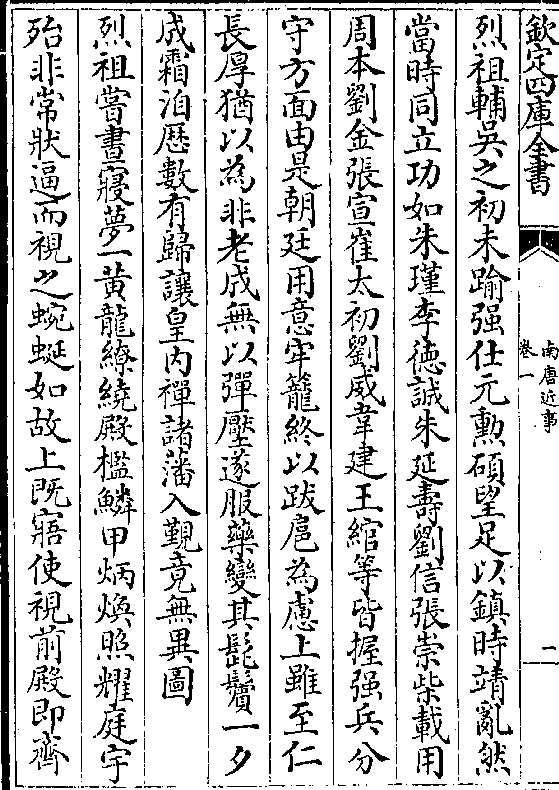 欽定四庫全書
南唐近事
卷一
二
烈祖輔吳之初未踰强仕元勲碩望足以鎮時靖亂然
當時同立功如朱瑾李德誠朱延壽劉信張崇柴載用
周本劉金張宣崔太初劉威韋建王綰等皆握强兵分
守方面由是朝廷用意牢籠終以跋扈為慮上雖至仁
長厚猶以為非老成無以彈壓遂服藥變其髭鬢一夕
成霜洎歷數有歸讓皇内禪諸藩入覲竟無異圖
烈祖嘗晝寢夢一黄龍繚繞殿檻鱗甲炳焕照耀庭宇
殆非常狀逼而視之蜿蜒如故上既寤使視前殿即齊